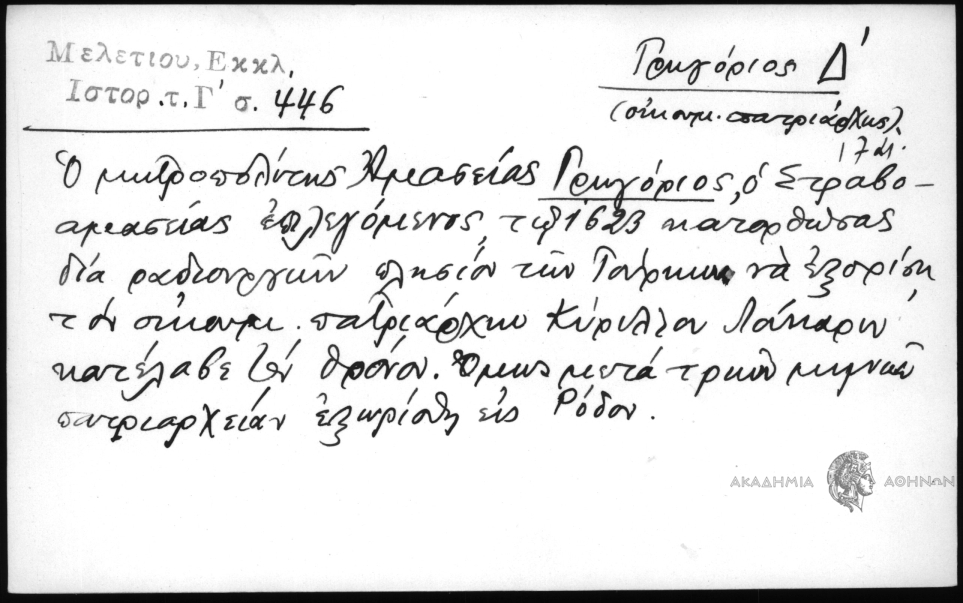 Μελετίου, Εκκλ.
Ιστορ. τ. Γ' σ. 446
Γρηγόριος Δ'
(οἰκουμ. πατριάρχης).
17 αἰ.
Ὁ μητροπολίτης Ἀμασείας Γρηγόριος, ὁ Στραβο-
αμασείας ἐπιλεγόμενος, τῷ 1623 κατορθώσας
διά ραδιουργιῶν πλησίον τῶν Τούρκων νὰ ἐξορίσῃ
τόν οἰκουμ. πατριάρχην Κύριλλον Λούκαριν,
κατέλαβε τόν θρόνον. Ὅμως μετά τριῶν μηνῶν
πατριαρχείαν ἐξωρίσθη εἰς Ρόδον.
ΑΚΑΔΗΜΙΑ ΑΘΗΝΩΝ